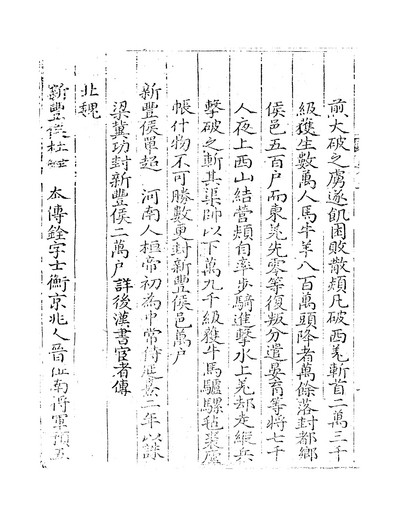 前大破之虜遂飢困敗散熲凡破西羌斬首二萬三千
級獲生數萬人馬牛羊八百萬頭降者萬餘落封都鄉
侯邑五百户而東羌先零等復叛分遣晏育等將七千
人夜上西山結營熲自率步騎進擊水上羌却走縱兵
擊破之斬其渠帥以下萬九千級獲牛馬驢騾氊裘廬
帳什物不可勝數更封新豐侯邑萬户
新豐侯單超 河南人桓帝初為中常侍延熹二年以誅
梁冀功封新豐侯二萬户詳後漢書宦者傳
北魏
新豐侯杜銓 本傳銓字士衡京兆人晉征南將軍預五